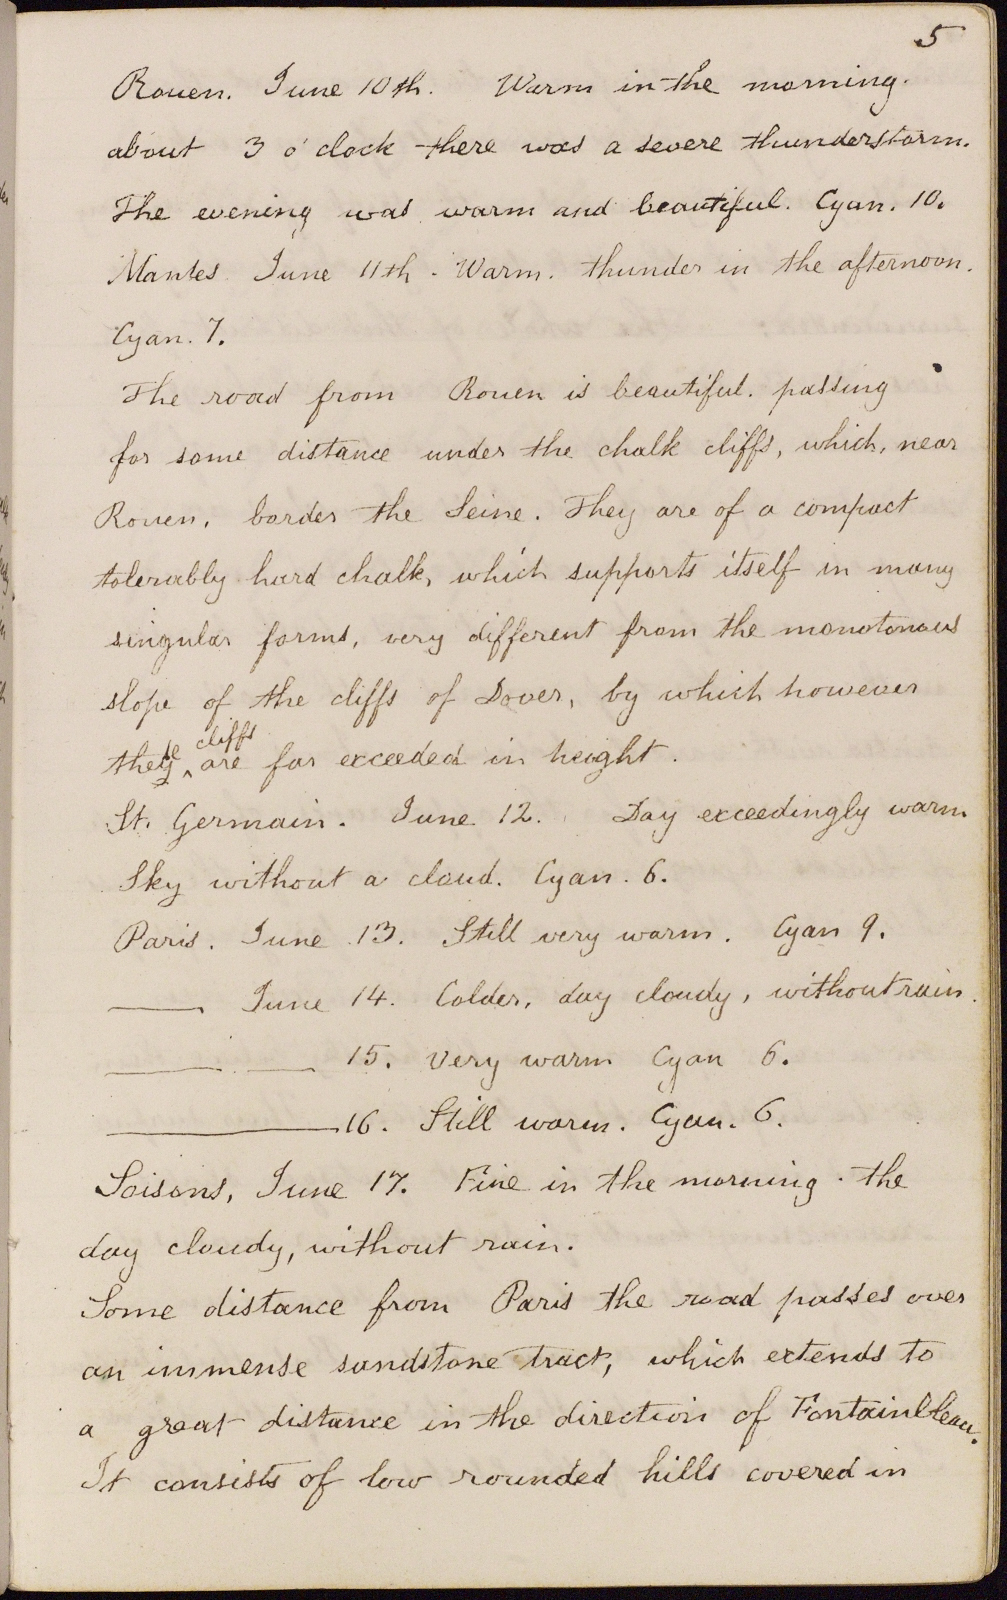 5
Rouen. June 10th. Warm in the morning.
about 3 o'clock there was a severe thunderstorm.
The evening was warm and beautiful. Cyan. 10.
Mantes June 11th. Warm. thunder in the afternoon.
Cyan. 7.
The road from Rouen is beautiful. passing
for some distance under the chalk cliffs, which, near
Rouen, border the Seine. They are of a compact
tolerably hard chalk, which supports itself in many
singular forms, very different from the monotonous
slope of the cliffs of Dover, by which however
cliffs
these ^ are far exceeded in height.
St. Germain. June 12. Day exceedingly warm
Sky without a cloud. Cyan. 6.
Paris. June 13. Still very warm. Cyan 9.
—— June 14. Colder, day cloudy, without rain.
—— —— 15. Very warm Cyan 6.
———— 16. Still warm. Cyan. 6.
Soisons, June 17. Fine in the morning. the
day cloudy, without rain.
Some distance from Paris the road passes over
an immense sandstone tract, which extends to
a great distance in the direction of Fontainbleau.
It consists of low rounded hills covered in